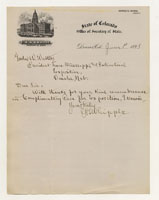 State of Colorado
Office of Secretary of State.
Denver, June 1st 1898
Gurdon W. Wattles
President Trans-Mississippi & International
Exposition,
Omaha, Neb.
Dear Sir:
With thanks for your kind remembrance
in Complimentary Pass for Exposition, I remain,
Yours truly